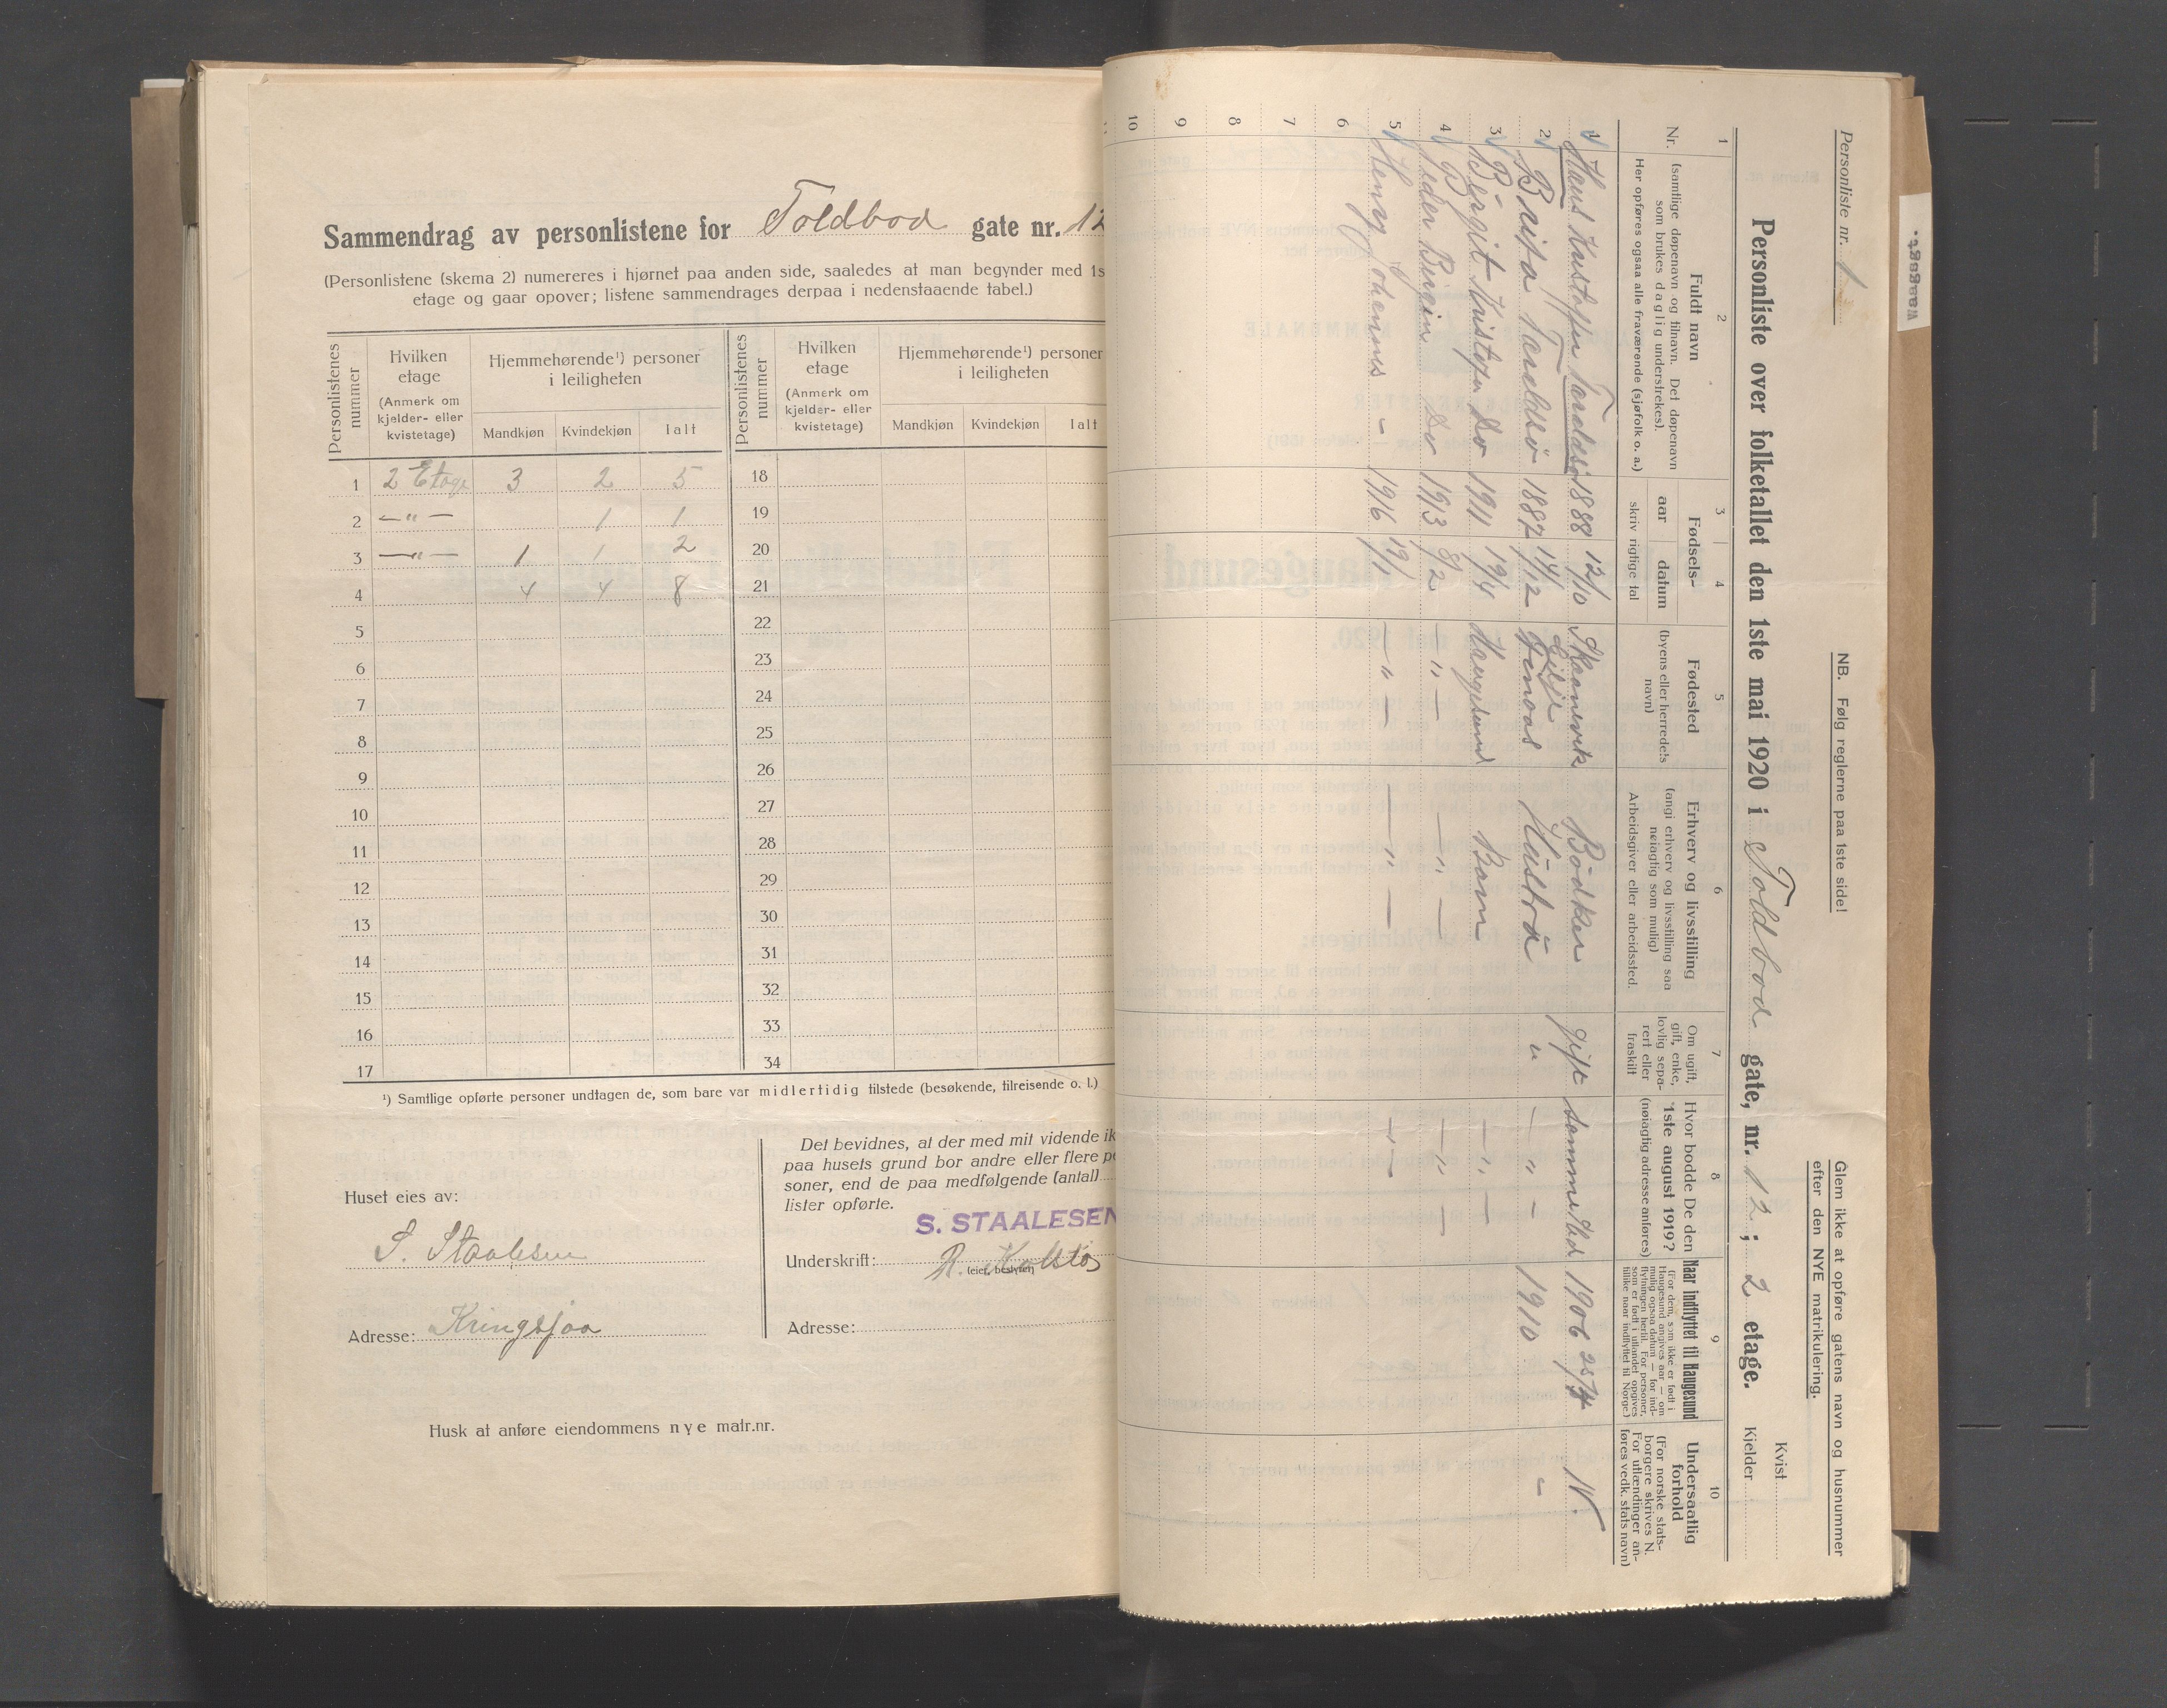 Sammendrag av personlistene for Toldbod gate nr. 12
(Personlistene (skema 2) numereres i hjørnet paa anden side, saaledes at man begynder med 1s
etage og gaar opover; listene sammendrages derpaa i nedenstaaende tabel.)
Personlistenes nummer
Hvilken etage (Anmerk om kjelder- eller kvistetage)
Hjemmehørende¹) personer i leiligheten
Mandkjøn Kvindekjøn Ialt
Personlistenes nummer
Hvilken etage (Anmerk om kjelder- eller kvistetage)
Hjemmehørende¹) personer i leiligheten
Mandkjøn Kvindekjøn Ialt
1 2 Etage 3 2 5 18
2 — " — 1 1 19
3 — " — 1 1 2 20
4 4 4 8 21
5 22
6 23
7 24
8 25
9 26
10 27
11 28
12 29
13 30
14 31
15 32
16 33
17 34
¹) Samtlige opførte personer undtagen de, som bare var midlertidig tilstede (besøkende, tilreisende o. l.)
Huset eies av:
S. Staalesen
Adresse: Kringsjaa
Det bevidnes, at der med mit vidende ik
paa husets grund bor andre eller flere pe
soner, end de paa medfølgende (antal)
lister opførte.
S. STAALESEN
Underskrift: R. Kolstø
(eier, bestyrer)
Adresse:
Husk at anføre eiendommens nye matr.nr.
Personliste nr. 1
NB. Følg reglerne paa 1ste side!
Glem ikke at opføre gatens navn og husnummer
efter den NYE matrikulering.
Personliste over folketallet den 1ste mai 1920 i Toldbod gate, nr. 12; 2 etage.
Kvist
Kjelder
1 2 3 4 5 6 7 8 9 10
Nr.
Fuldt navn
(samtlige døpenavn og tilnavn. Det døpenavn
som brukes daglig understrekes).
Her opføres ogsaa alle fraværende (sjøfolk o. a.)
Fødsels-
aar datum
skriv rigtige tal
Fødested
(byens eller herredets
navn)
Erhverv og livsstilling
(angi erhverv og livsstilling saa
nøiagtig som mulig)
Arbeidsgiver eller arbeidssted.
Om ugift,
gift, enke,
lovlig sepa-
rert eller
fraskilt
Hvor bodde De den
1ste august 1919?
(nøiagtig adresse anføres)
Naar indflyttet til Haugesund
(For dem, som ikke er født i
Haugesund angives aar — om
mulig ogsaa datum — for ind-
flytningen hertil. For personer,
som er født i utlandet opgives
tillike naar indflyttet til Norge.)
Undersaatlig
forhold
(For norske stats-
borgere skrives N.
For utlændinger an-
føres vedk. stats navn)
1 Hans Kristoffer 1888 12/10 Skaanevik Bødker gift samme sted 1906 N.
2 Brita 1887 14/12 Hustru " — " — 1910 -
3 Bergit Kristofa Do 1911 19/4 Haugesund Barn — " —
4 Peder Do 1913 8/2 — " — — " — — " —
5 Henry Johannes - 1916 19/1 — " — — " — — " —
6
7
8
9
10